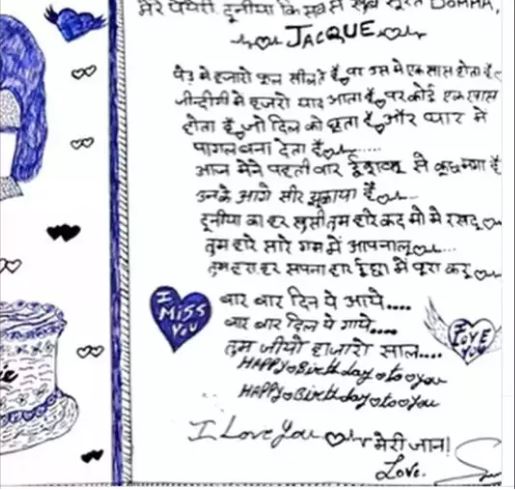 मेरे
JACQUE
पेड़ मे हजारो फुल खीलते हैं, पर उस मे एक खास होता हैं
जीन्दीगी मे हजारो यार आता हैं, पर कोई एक खास
होता हैं, जो दिल को छुता हैं, और प्यार मे
पागल बना देता हैं.....
आज मेने पहली बार से कुछ मंगा हैं
उनके आगे सीर झुकाया हैं...
दुनीया का हर खुसी तुम हारे कद मो मे रख दु
तुम हारे सारे गम में आपनालू...
तुमहारा हर सपना हार ईछा में पूरा करू
I MISS YOU
बार बार दिन ये आये....
बार बार दिल ये गाये....
I LOVE YOU
तुम जीयो हाजारो साल....
HAPPY Birthday to you
HAPPY Birthday to you
I Love You मेरी जान!
Love.